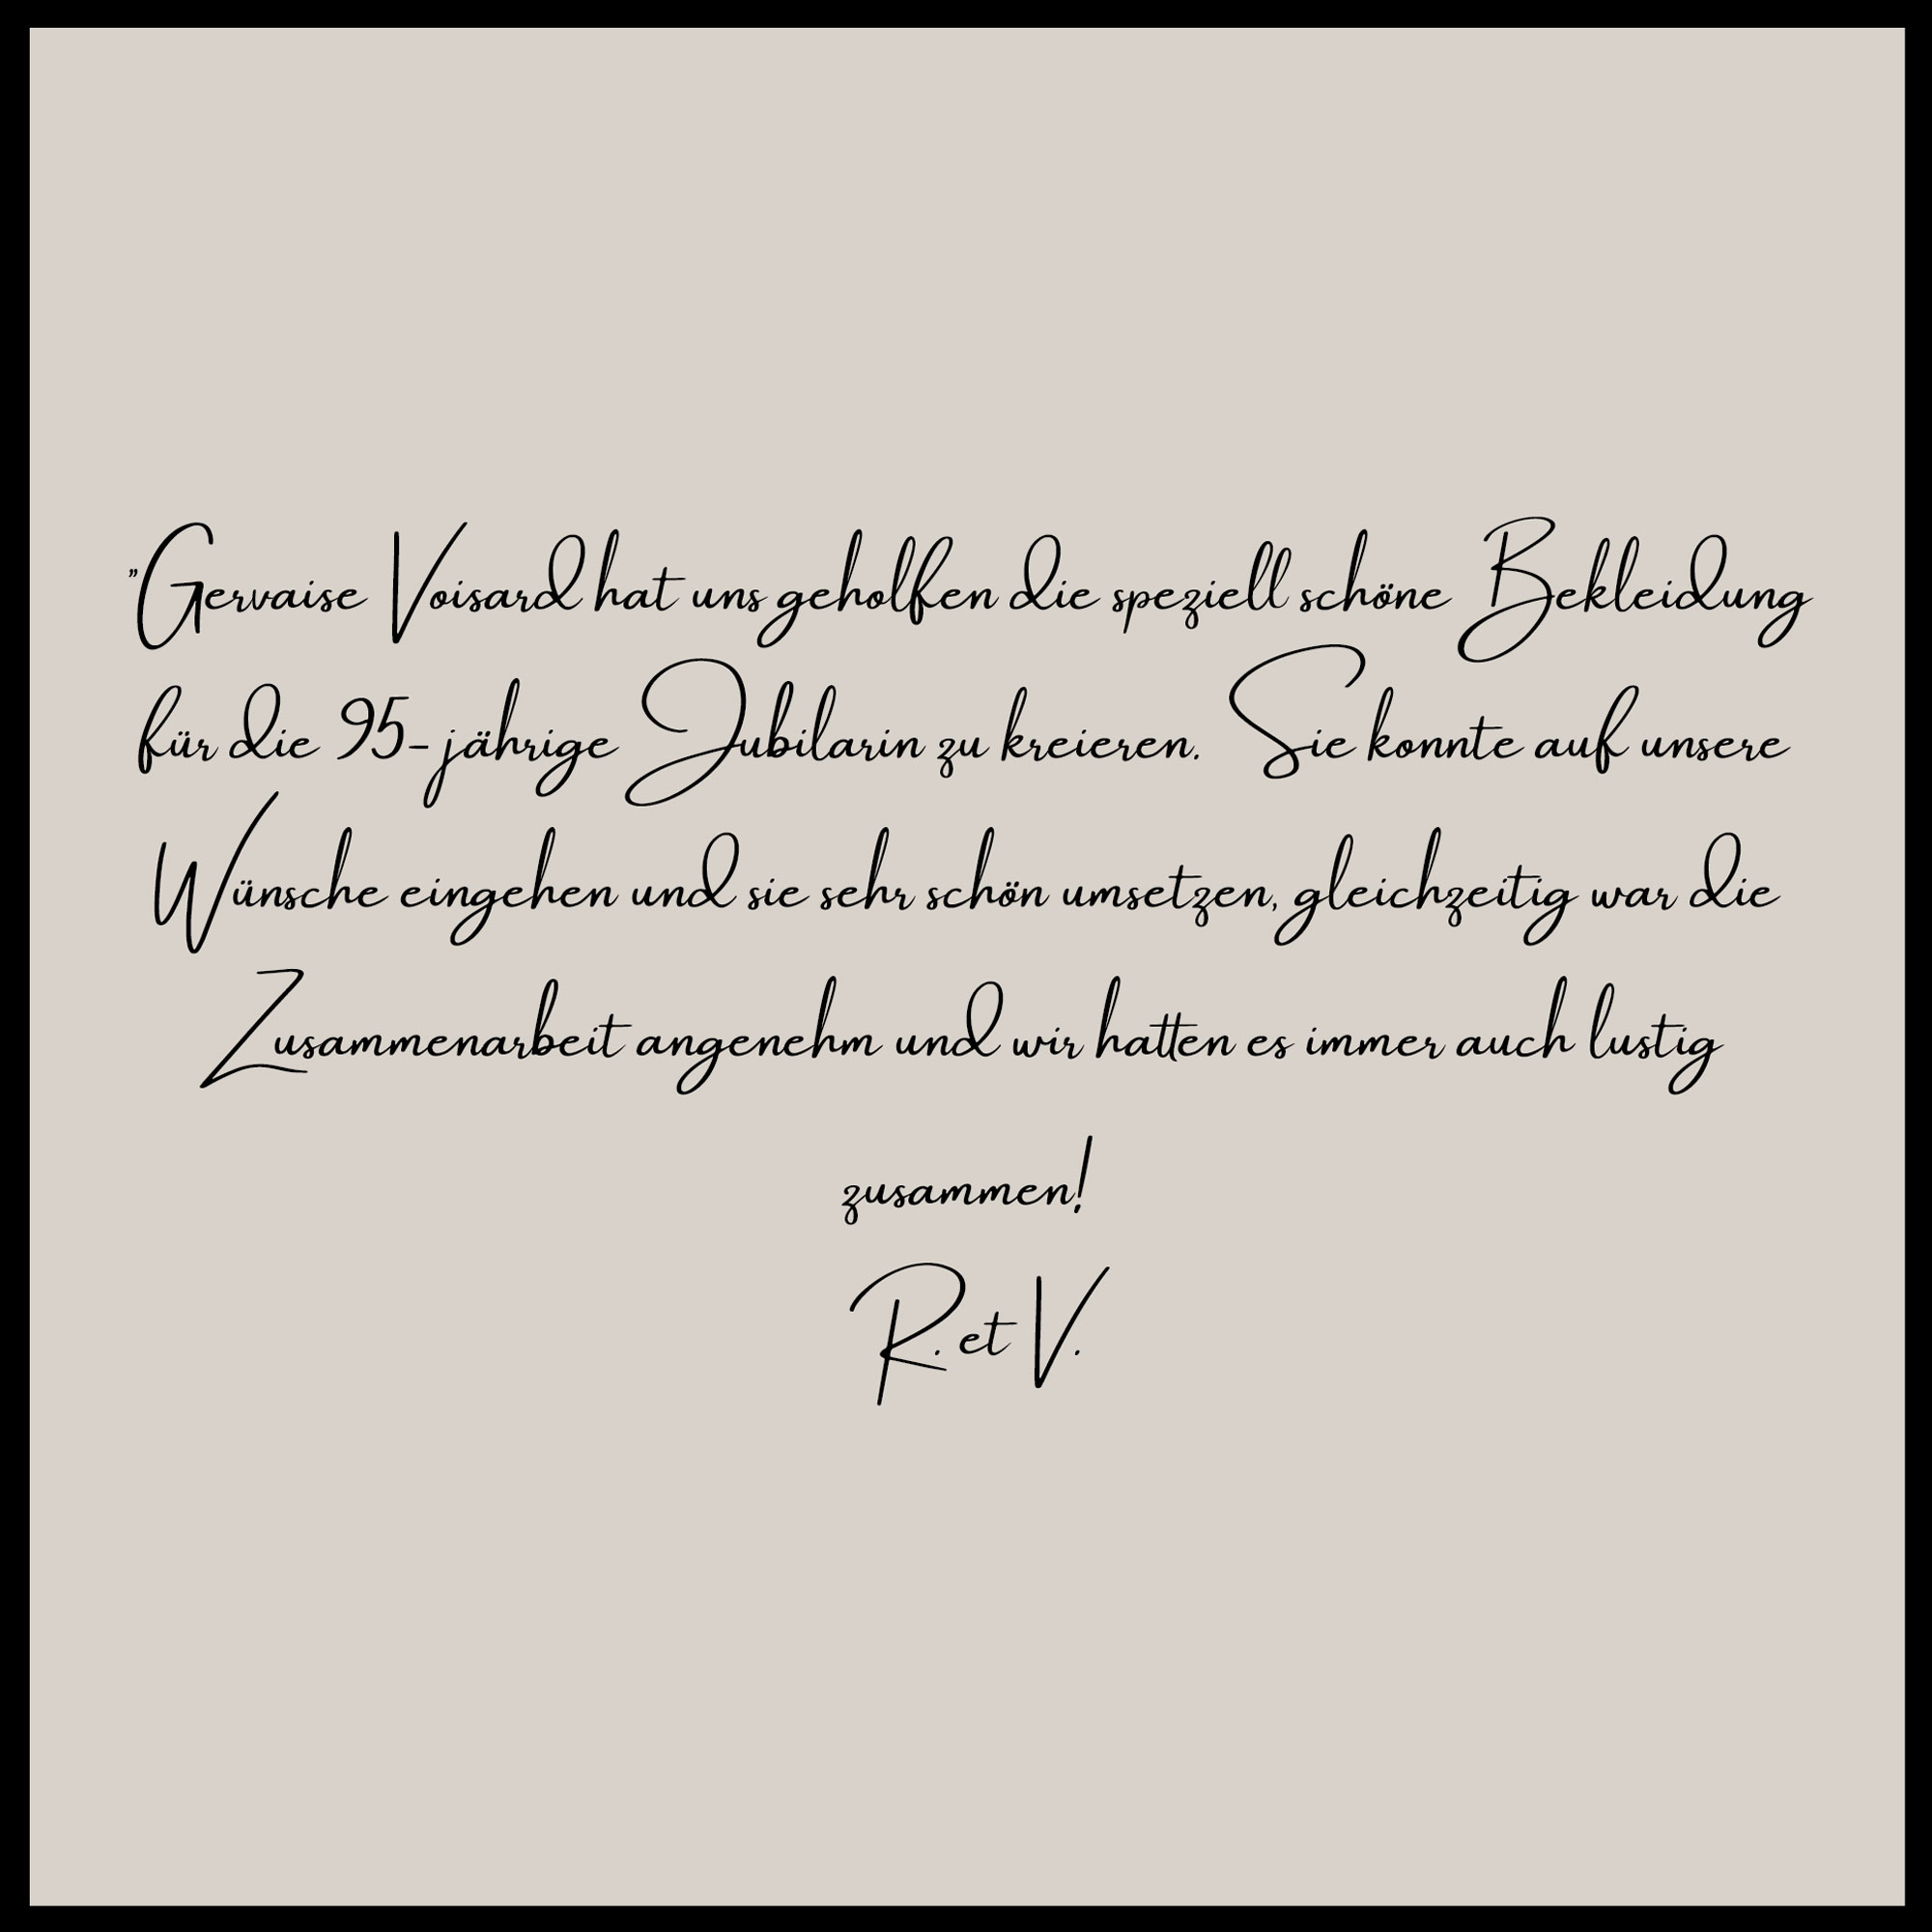 "Gervaise Voisard hat uns geholfen die speziell schöne Bekleidung
für die 95-jährige Jubilarin zu kreieren. Sie konnte auf unsere
Wünsche eingehen und sie sehr schön umsetzen, gleichzeitig war die
Zusammenarbeit angenehm und wir hatten es immer auch lustig
zusammen!
R. et V.